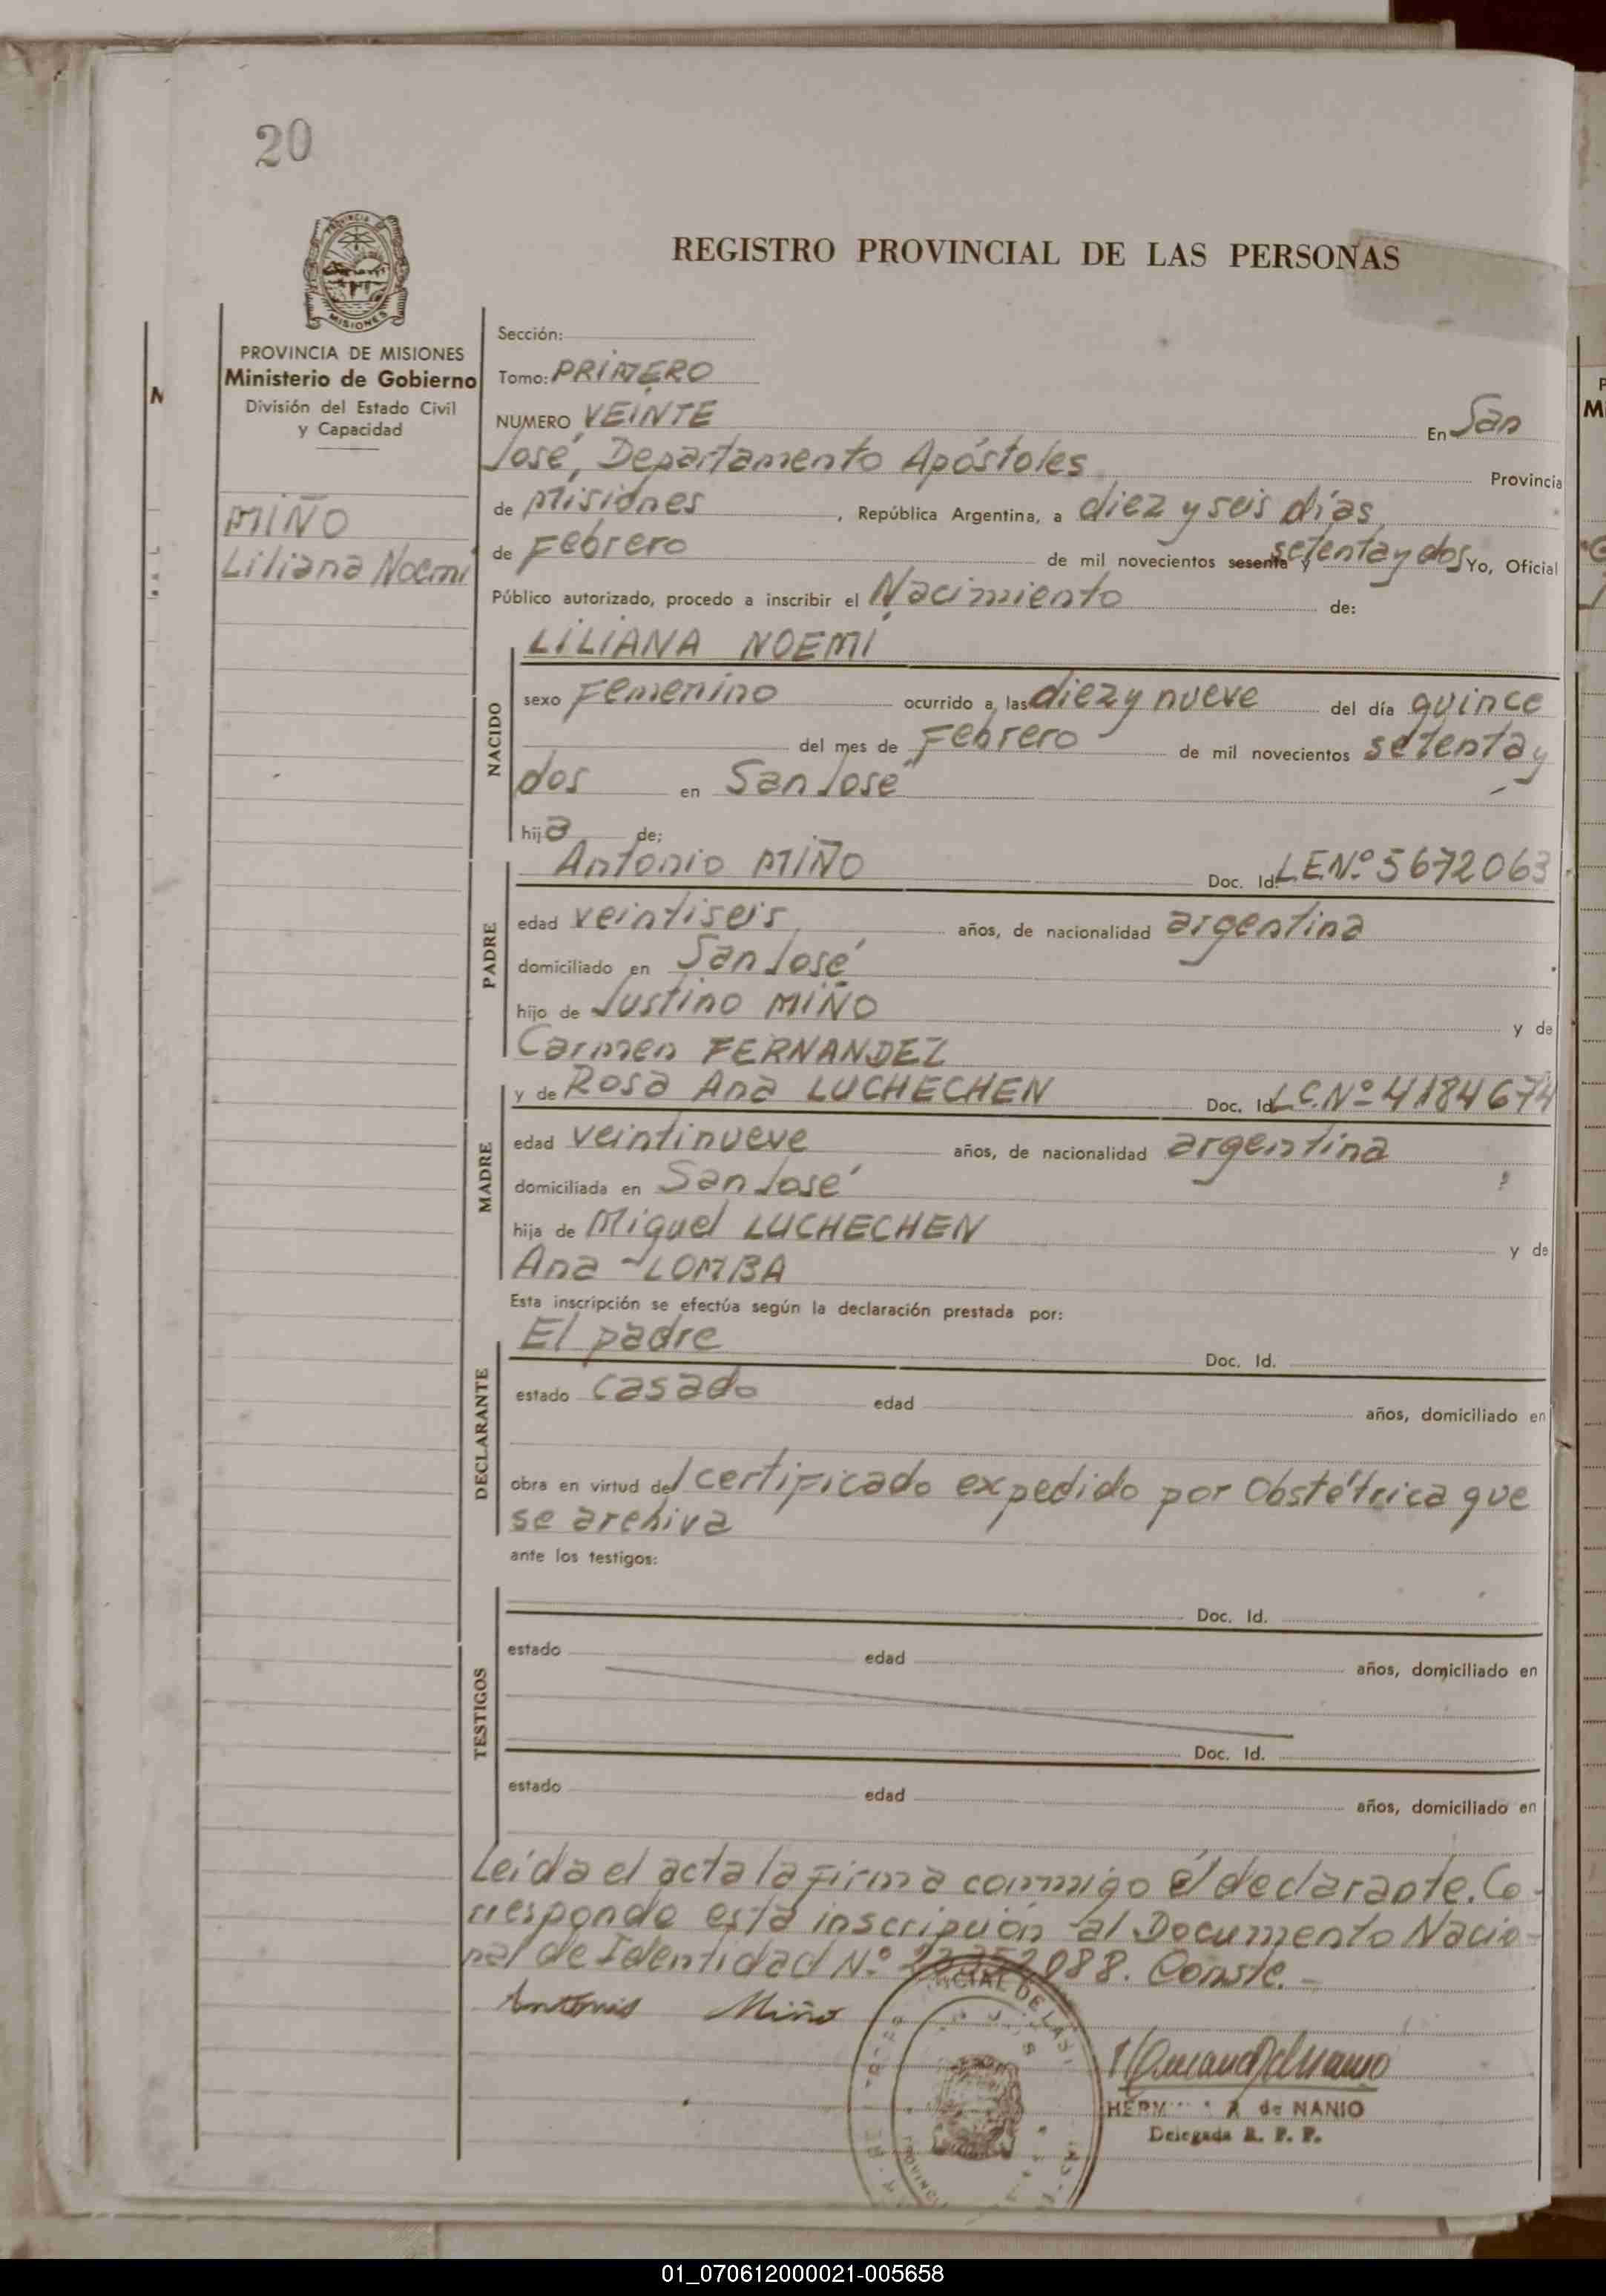 20
REGISTRO PROVINCIAL DE LAS PERSONAS
PROVINCIA DE MISIONES
Ministerio de Gobierno
División del Estado Civil
y Capacidad
MIÑO
Liliana Noemí
Sección:
Tomo: PRIMERO
NUMERO VEINTE En San
José, Departamento Apóstoles Provincia
de Misiones, República Argentina, a diez y seis días
de Febrero de mil novecientos sesenta y setenta y dos Yo, Oficial
Público autorizado, procedo a inscribir el Nacimiento de:
NACIDO
LILIANA NOEMÍ
sexo Femenino ocurrido a las diez y nueve del día quince
del mes de Febrero de mil novecientos setenta y
dos en San José
hija de:
PADRE
Antonio MIÑO Doc. Id. L E Nº 5672063
edad veintiseis años, de nacionalidad argentina
domiciliado en San José
hijo de Justino MIÑO y de
Carmen FERNANDEZ
MADRE
y de Rosa Ana LUCHECHEN Doc. Id. L C. Nº 4184674
edad veintinueve años, de nacionalidad argentina
domiciliada en San José
hija de Miguel LUCHECHEN y de
Ana LOMBA
Esta inscripción se efectúa según la declaración prestada por:
DECLARANTE
El padre Doc. Id.
estado casado edad años, domiciliado en
obra en virtud del certificado expedido por Obstétrica que
se archiva
ante los testigos:
TESTIGOS
Doc. Id.
estado edad años, domiciliado en
Doc. Id.
estado edad años, domiciliado en
Leída el acta la firma conmigo el declarante. Co-
rresponde esta inscripción al Documento Nacio-
nal de Identidad Nº 088. Conste.-
Antonio Miño
de NANIO
Delegada R. P. P.
01_070612000021-005658